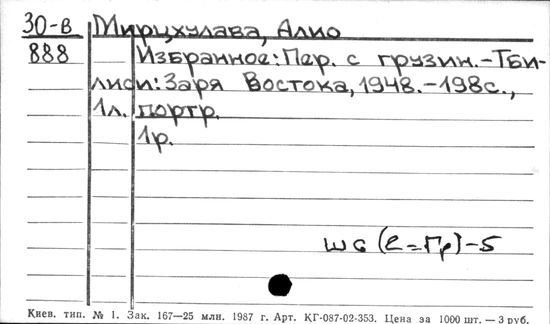 30-в Мирцхулава, Алио
888 Избранное: Пер. с грузин.-Тби-
лиси: Заря Востока, 1948.-198с.,
1л. портр.
1р.
Ш6 (2=Гр)-5
Киев. тип. № 1. Зак. 167—25 млн. 1987 г. Арт. КГ-087-02-353. Цена за 1000 шт. — 3 руб.